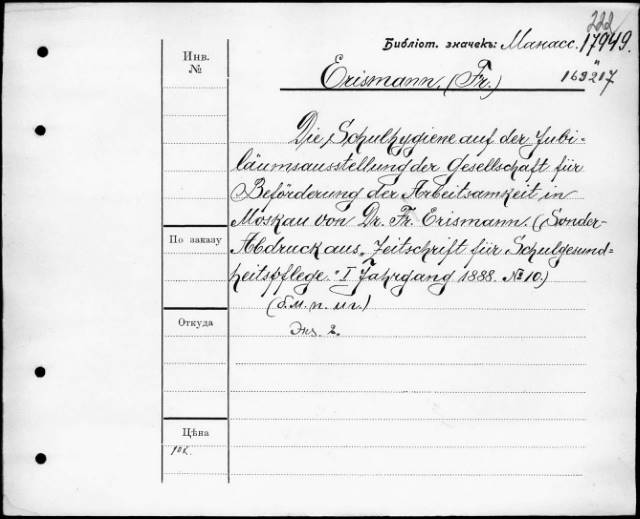 222
Библіот. значекъ: Манасс. 17949.
"
169217
Инв.
№
Erismann. (Fr.)
Die Schulhygiene auf der Jubi-
läumsausstellung der Gesellschaft für
Beförderung der Arbeitsamkeit in
Moskau von Dr. Fr. Erismann. (Sonder-
Abdruck aus „Zeitschrift für Schulgesund=
heitspflege." I Jahrgang 1888. № 10.)
(б. м. п. и г.)
Экз. 2.
По заказу
Откуда
Цѣна
10к.